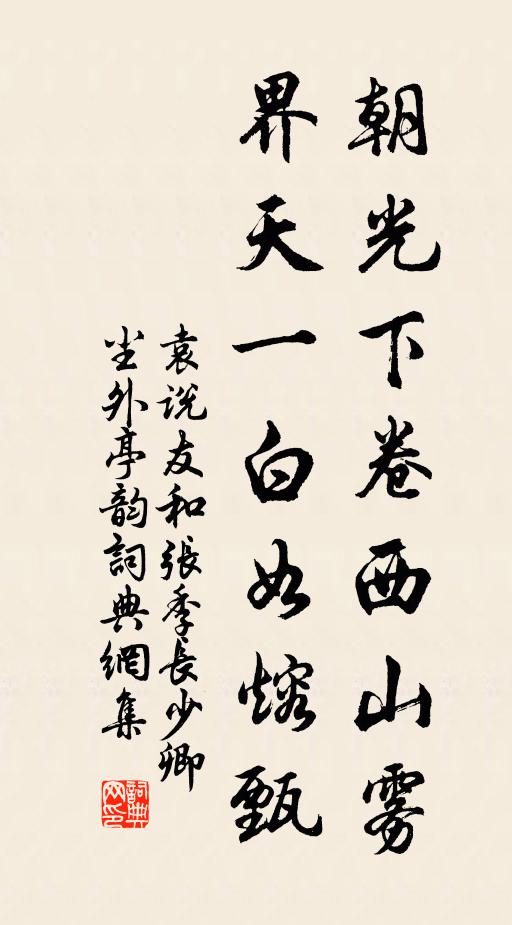 朝光下卷西山雾
界天一白如熔甄
袁说友和張季長少卿
尘外亭韵詞典網集
詞典
网印